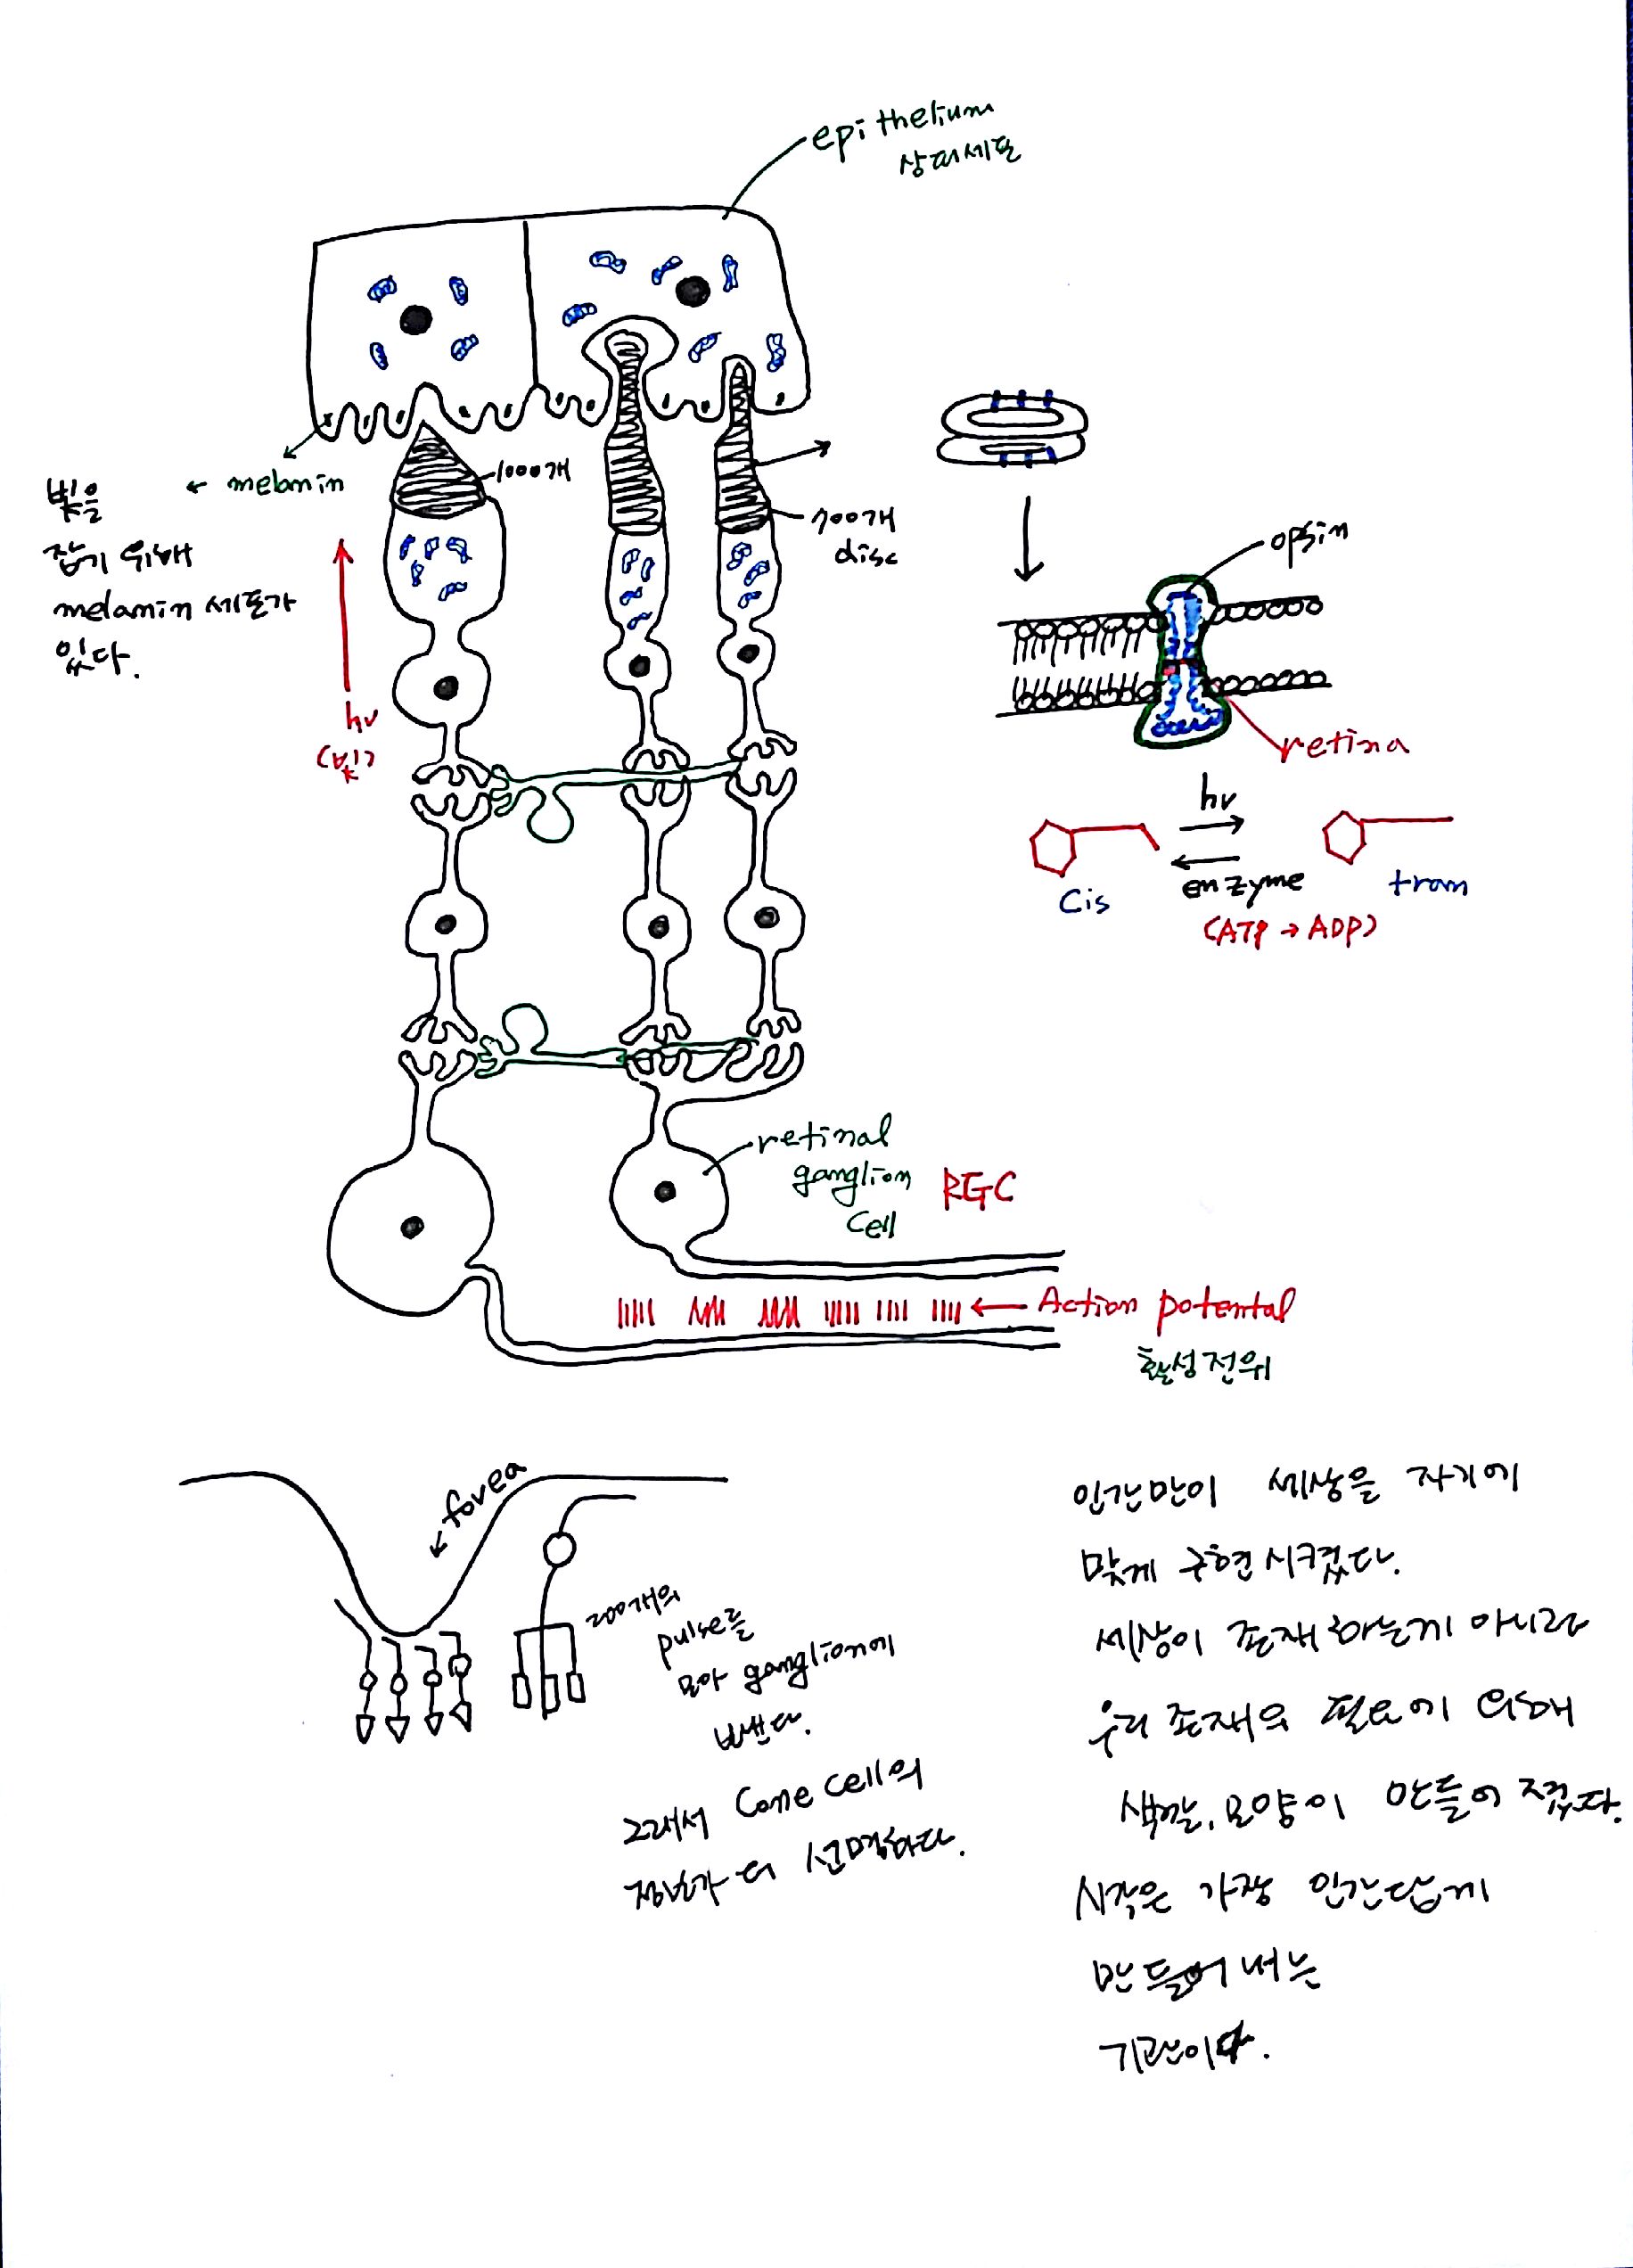 epithelium
상피세포
melamin
빛을
잡기 위해
melamin 세포가
있다.
1000개
700개
disc
hν
(빛)
opsin
retina
hν
enzyme
(ATP → ADP)
Cis
tran
retinal
ganglion
cell
RGC
Action potental
활성전위
fovea
200개의
pulse를
모아 ganglion에
보낸다.
그래서 Cone cell의
정보가 더 선명하다.
인간만이 세상을 자기에
맞게 구현시켰다.
세상이 존재하는게 아니라
우리 존재의 필요에 의해
색깔, 모양이 만들어 졌다.
시각은 가장 인간답게
만들어 내는
기관이다.